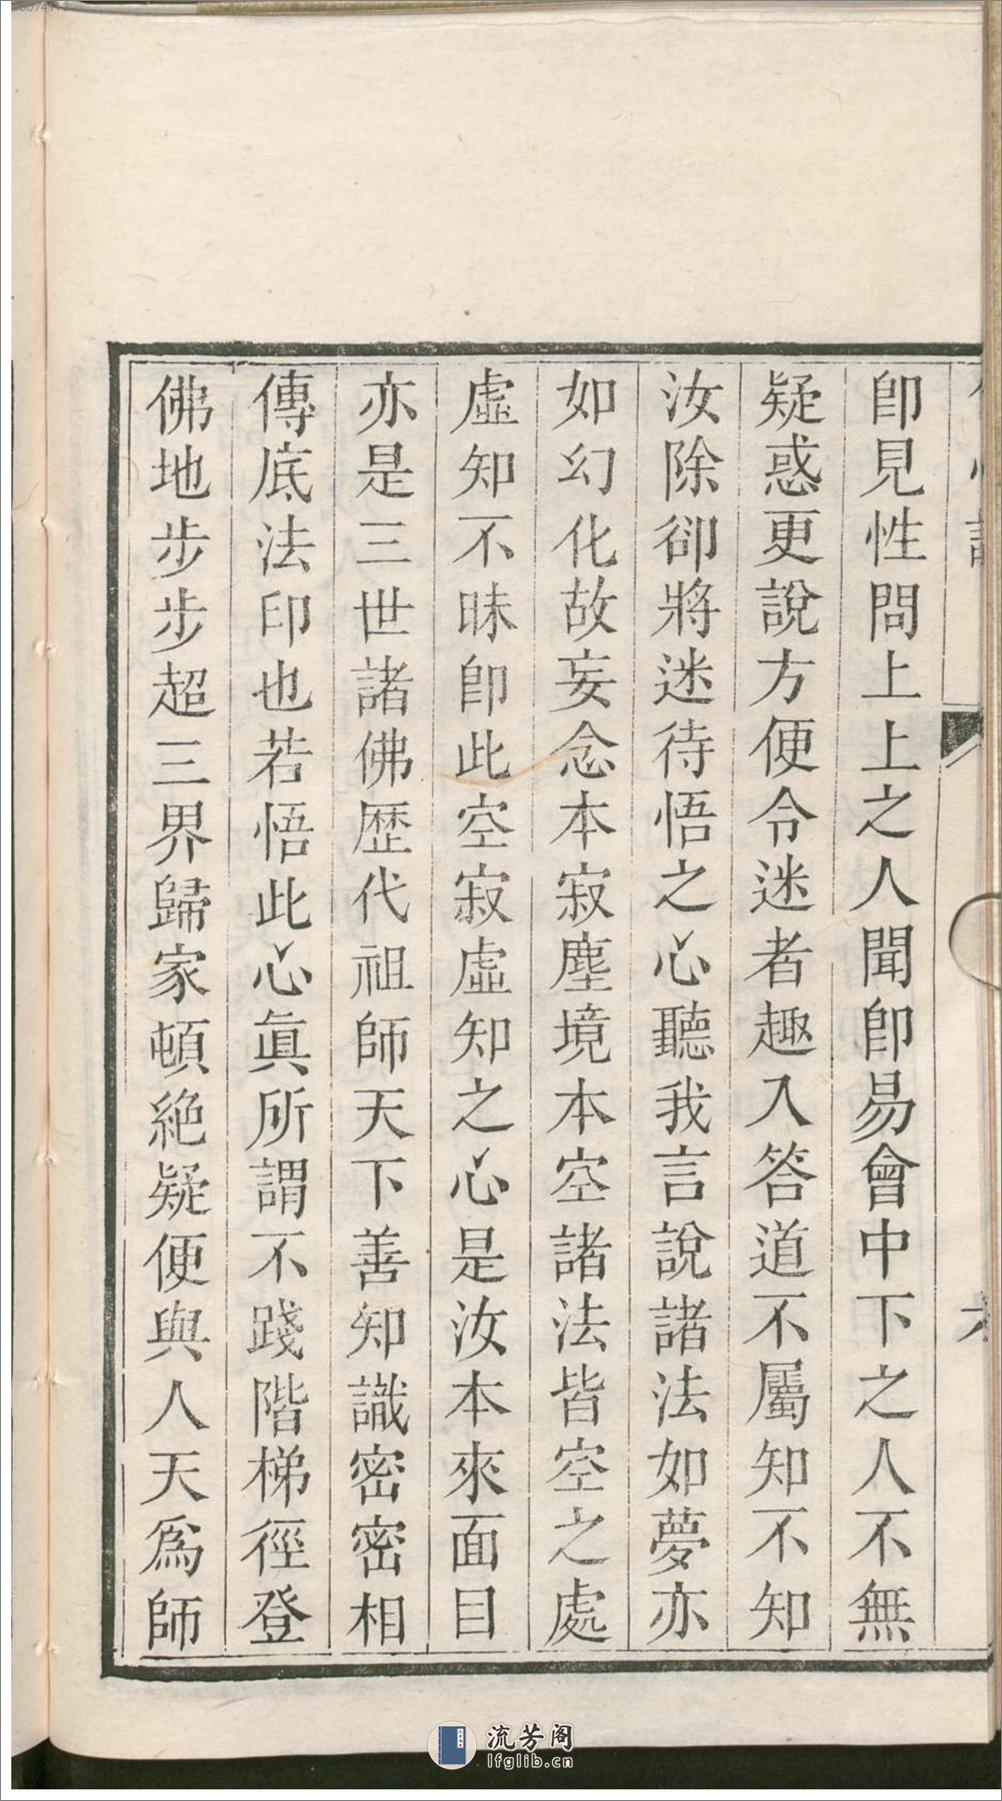 卽見性問上上之人聞卽易會中下之人不無
疑惑更說方便令迷者趣入答道不屬知不知
汝除卻將迷待悟之心聽我言說諸法如夢亦
如幻化故妄念本寂塵境本空諸法皆空之處
虛知不昧卽此空寂虛知之心是汝本來面目
亦是三世諸佛歷代祖師天下善知識密密相
傳底法印也若悟此心眞所謂不踐階梯徑登
佛地步步超三界歸家頓絶疑便與人天爲師
流芳阁
lfglib.cn